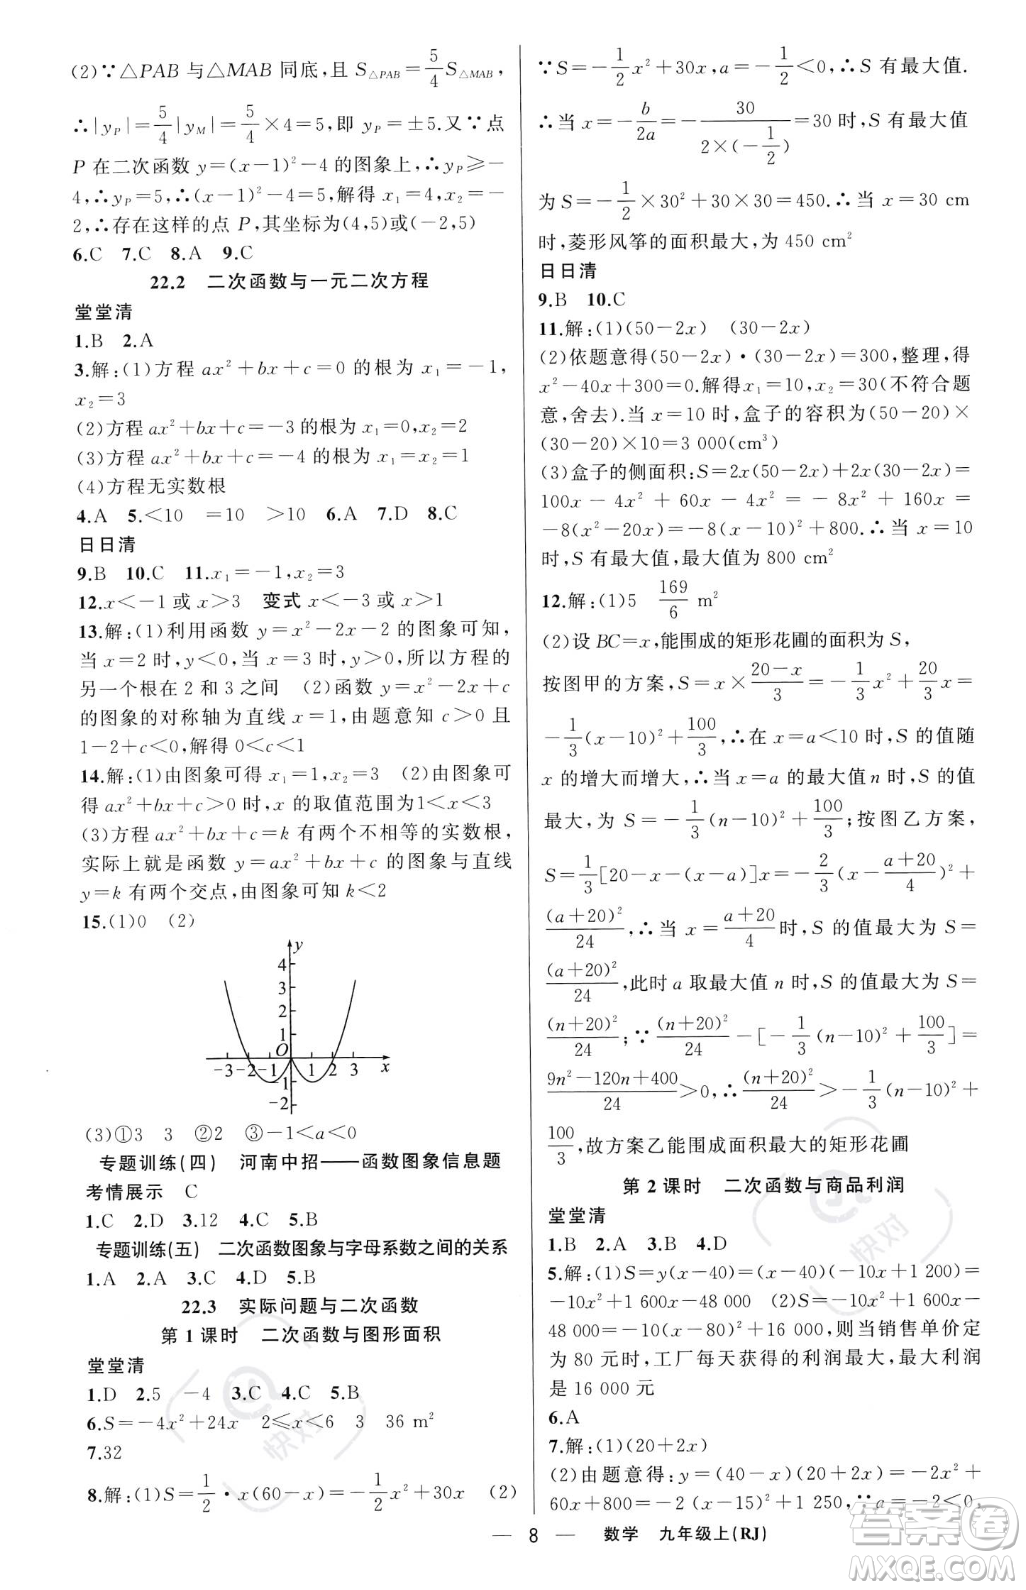 (2)∵△PAB与△MAB同底,且S△PAB=5/4 S△MAB,
∴|yP|=5/4|yM|=5/4×4=5,即yP=±5.又∵点
P在二次函数y=(x-1)²-4的图象上,∴yP≥-
4,∴yP=5,∴(x-1)²-4=5,解得x₁=4,x₂=-
2,∴存在这样的点P,其坐标为(4,5)或(-2,5)
6.C 7.C 8.A 9.C
22.2 二次函数与一元二次方程
堂堂清
1.B 2.A
3.解:(1)方程ax²+bx+c=0的根为x₁=-1,
x₂=3
(2)方程ax²+bx+c=-3的根为x₁=0,x₂=2
(3)方程ax²+bx+c=-4的根为x₁=x₂=1
(4)方程无实数根
4.A 5.<10 =10 >10 6.A 7.D 8.C
日日清
9.B 10.C 11.x₁=-1,x₂=3
12.x<-1或x>3 变式 x<-3或x>1
13.解:(1)利用函数y=x²-2x-2的图象可知,
当x=2时,y<0,当x=3时,y>0,所以方程的
另一个根在2和3之间 (2)函数y=x²-2x+c
的图象的对称轴为直线x=1,由题意知c>0且
1-2+c<0,解得0<c<1
14.解:(1)由图象可得x₁=1,x₂=3 (2)由图象可
得ax²+bx+c>0时,x的取值范围为1<x<3
(3)方程ax²+bx+c=k有两个不相等的实数根,
实际上就是函数y=ax²+bx+c的图象与直线
y=k有两个交点,由图象可知k<2
15.(1)0 (2)
y
4
3
2
1
O
-3 -2 -1 1 2 3 x
-1
-2
(3)①3 3 ②2 ③-1<a<0
专题训练(四) 河南中招——函数图象信息题
考情展示 C
1.C 2.D 3.12 4.C 5.C
专题训练(五) 二次函数图象与字母系数之间的关系
1.A 2.A 3.C 4.D 5.D 6.C
22.3 实际问题与二次函数
第1课时 二次函数与图形面积
堂堂清
1.D 2.5 -4 3.C 4.C 5.C
6.S=-4x²+24x 2≤x<6 3 36 m²
7.32
8.解:(1)S=1/2·x(60-x)=-1/2x²+30x (2)
∵S=-1/2x²+30x,a=-1/2<0,∴S有最大值.
∴当x=-b/2a=-30/(2×(-1/2))=30时,S有最大值
为S=-1/2×30²+30×30=450.∴当x为30 cm
时,菱形风筝的面积最大,为450 cm²
日日清
9.B 10.C
11.解:(1)(50-2x) (30-2x)
(2)依题意得(50-2x)·(30-2x)=300,整理,得
x²-40x+300=0.解得x₁=10,x₂=30(不符合题
意,舍去).当x=10时,盒子的容积为(50-20)×
(30-20)×10=3 000(cm³)
(3)盒子的侧面积:S=2x(50-2x)+2x(30-2x)=
100x-4x²+60x-4x²=-8x²+160x=
-8(x²-20x)=-8(x-10)²+800.∴当x=10
时,S有最大值,最大值为800 cm²
12.解:(1)5 169/6 m²
(2)设BC=x,能围成的矩形花圃的面积为S,
按图甲的方案,S=x×(20-x)/3=-1/3x²+20/3x=
-1/3(x-10)²+100/3;∴在x=a<10时,S的值随
x的增大而增大,∴当x=a的最大值n时,S的值
最大,为S=-1/3(n-10)²+100/3;按图乙方案,
S=1/3[20-x-(x-a)]x=-2/3(x-(a+20)/4)²+
(a+20)²/24,∴当x=(a+20)/4时,S的值最大为S=
(a+20)²/24,此时a取最大值n时,S的值最大为S=
(n+20)²/24;∵(n+20)²/24-[-1/3(n-10)²+100/3]=
(9n²-120n+400)/24>0,∴(n+20)²/24>-1/3(n-10)²+
100/3,故方案乙能围成面积最大的矩形花圃
第2课时 二次函数与商品利润
堂堂清
1.B 2.A 3.B 4.D
5.解:(1)S=y(x-40)=(x-40)(-10x+1 200)=
-10x²+1 600x-48 000 (2)S=-10x²+1 600x-
48 000=-10(x-80)²+16 000,则当销售单价定
为80元时,工厂每天获得的利润最大,最大利润
是16 000元
6.A
7.解:(1)(20+2x)
(2)由题意得:y=(40-x)(20+2x)=-2x²+
60x+800=-2(x-15)²+1 250,∵a=-2<0,
8 数学 九年级上(RJ)
快对
快对
答案圈
MXQE.COM